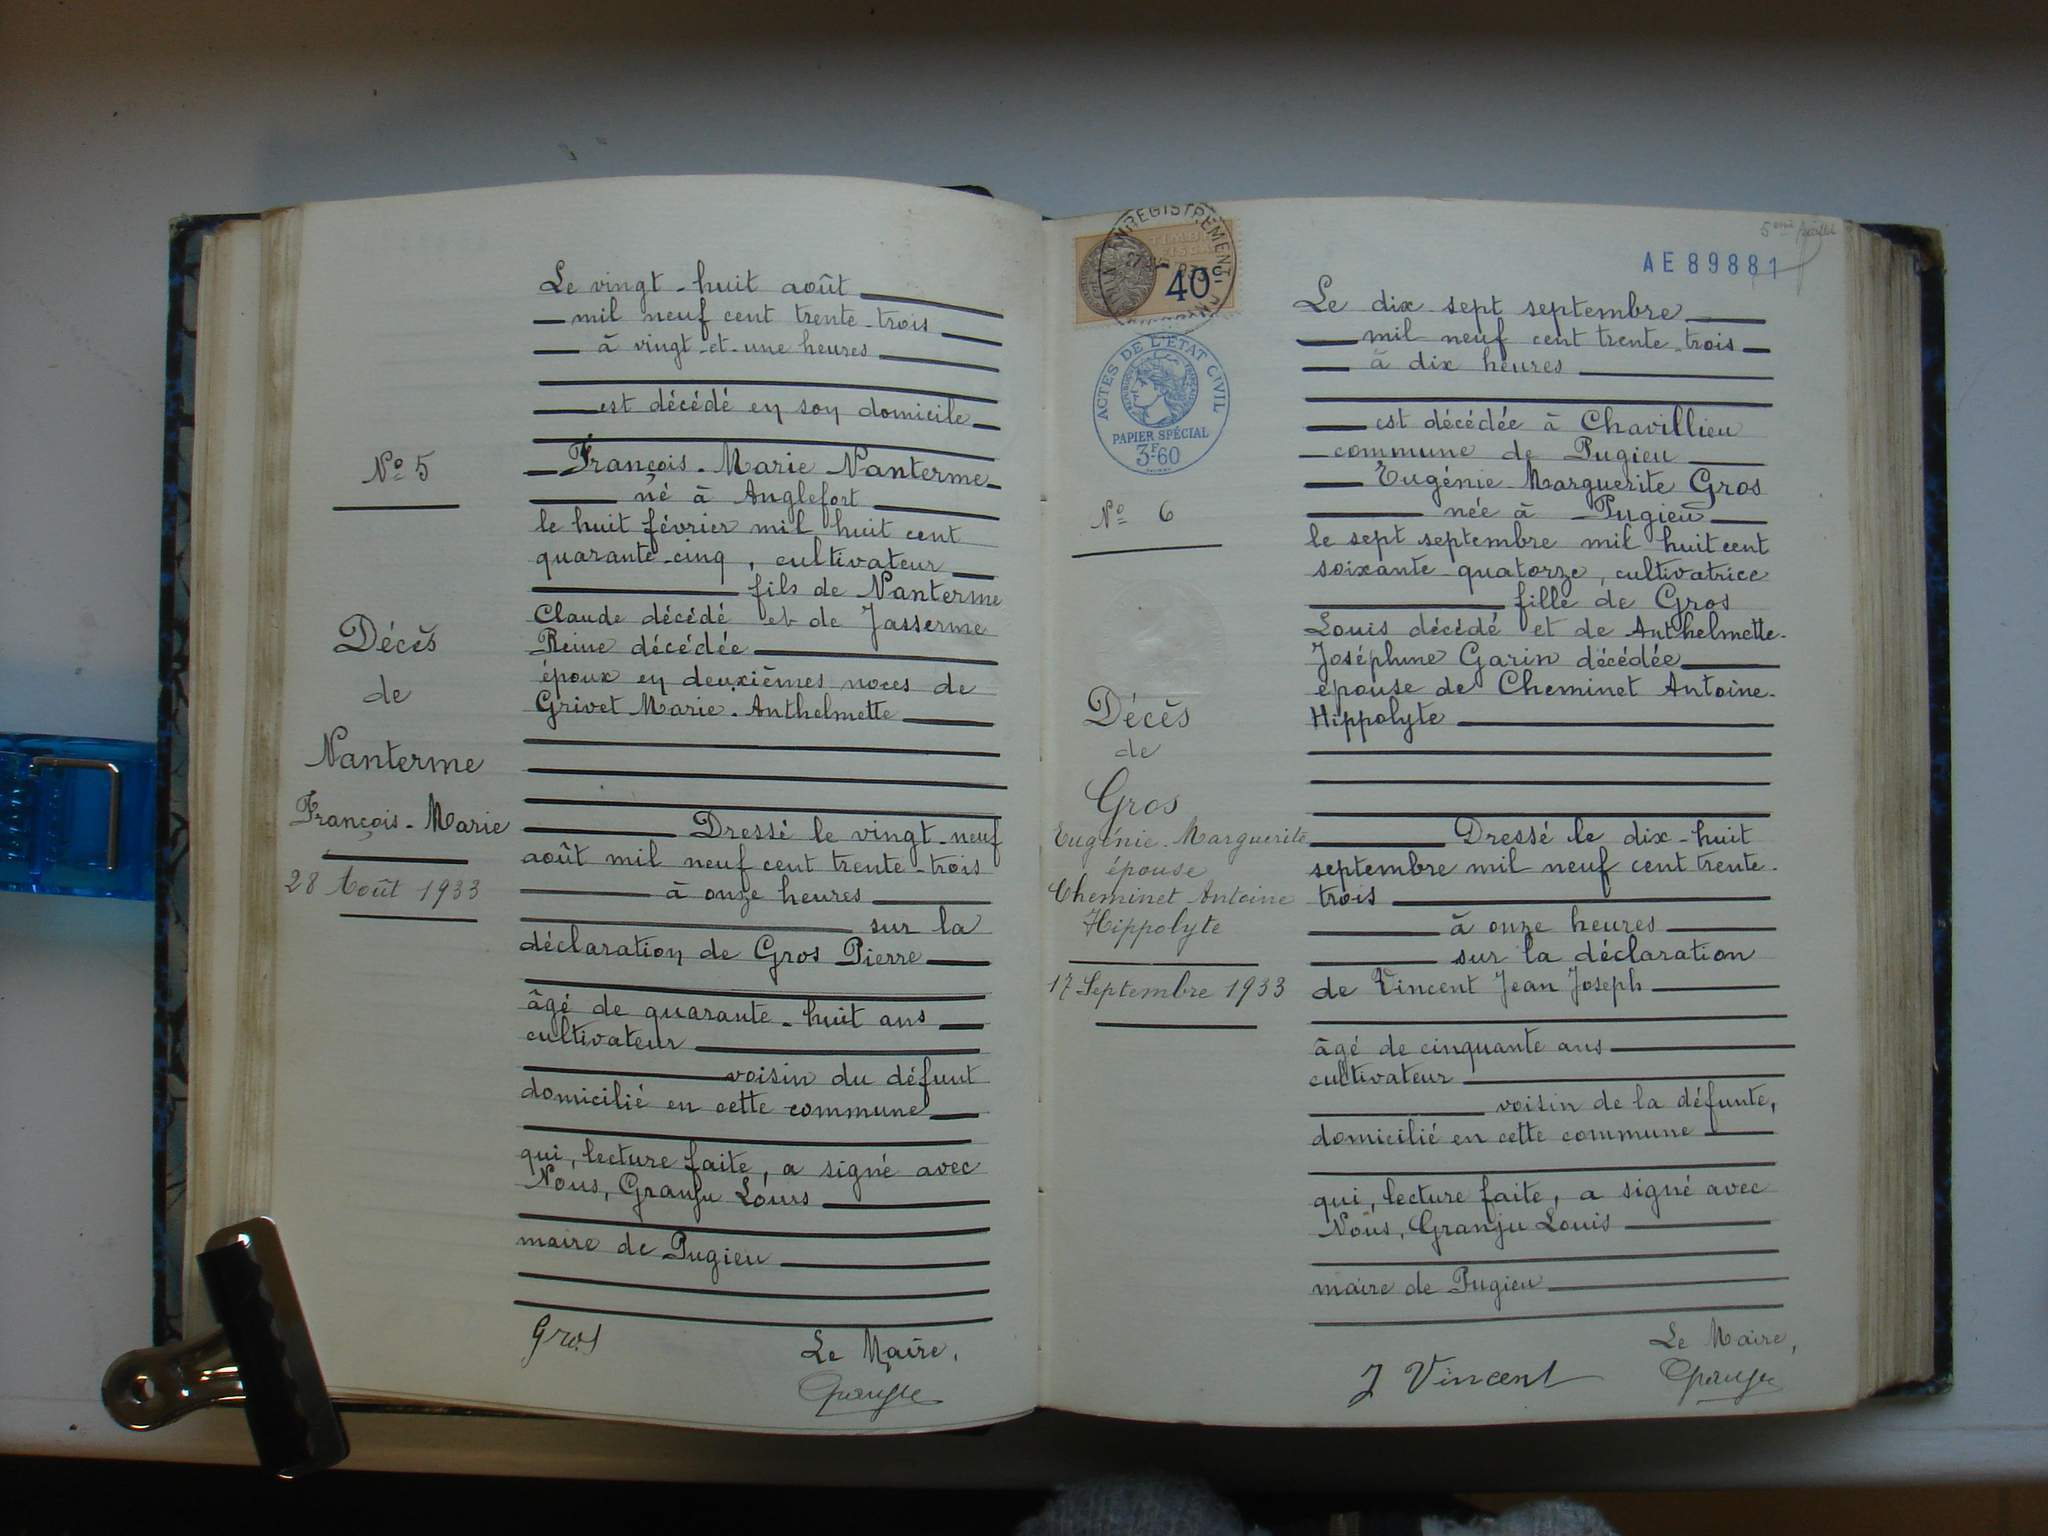 Le vingt-huit août
mil neuf cent trente-trois
à vingt-et-une heures
est décédé en son domicile
Nº 5
François-Marie Nanterme
né à Anglefort
le huit février mil huit cent
quarante-cinq, cultivateur
fils de Nanterme
Claude décédé et de Jasserme
Reine décédée
époux en deuxièmes noces de
Grivet Marie-Anthelmette
Décès
de
Nanterme
François-Marie
28 Août 1933
Dressé le vingt-neuf
août mil neuf cent trente-trois
à onze heures
sur la
déclaration de Gros Pierre
âgé de quarante-huit ans
cultivateur
voisin du défunt
domicilié en cette commune
qui, lecture faite, a signé avec
Nous, Granju Louis
maire de Pugieu
Gros
Le Maire,
Granju
5ème
AE 89881
ENREGISTREMENT
TIMBRE
FISCAL
40
ACTES DE L'ÉTAT CIVIL
PAPIER SPÉCIAL
3F60
Le dix sept septembre
mil neuf cent trente-trois
à dix heures
est décédée à Chavillieu
commune de Pugieu
Nº 6
Eugénie-Marguerite Gros
née à Pugieu
le sept septembre mil huit cent
soixante-quatorze, cultivatrice
fille de Gros
Louis décédé et de Anthelmette-
Joséphine Garin décédée
épouse de Cheminet Antoine-
Hippolyte
Décès
de
Gros
Eugénie-Marguerite
épouse
Cheminet Antoine
Hippolyte
17 Septembre 1933
Dressé le dix-huit
septembre mil neuf cent trente-
trois
à onze heures
sur la déclaration
de Vincent Jean Joseph
âgé de cinquante ans
cultivateur
voisin de la défunte,
domicilié en cette commune
qui, lecture faite, a signé avec
Nous, Granju Louis
maire de Pugieu
Le Maire,
J Vincent
Granju